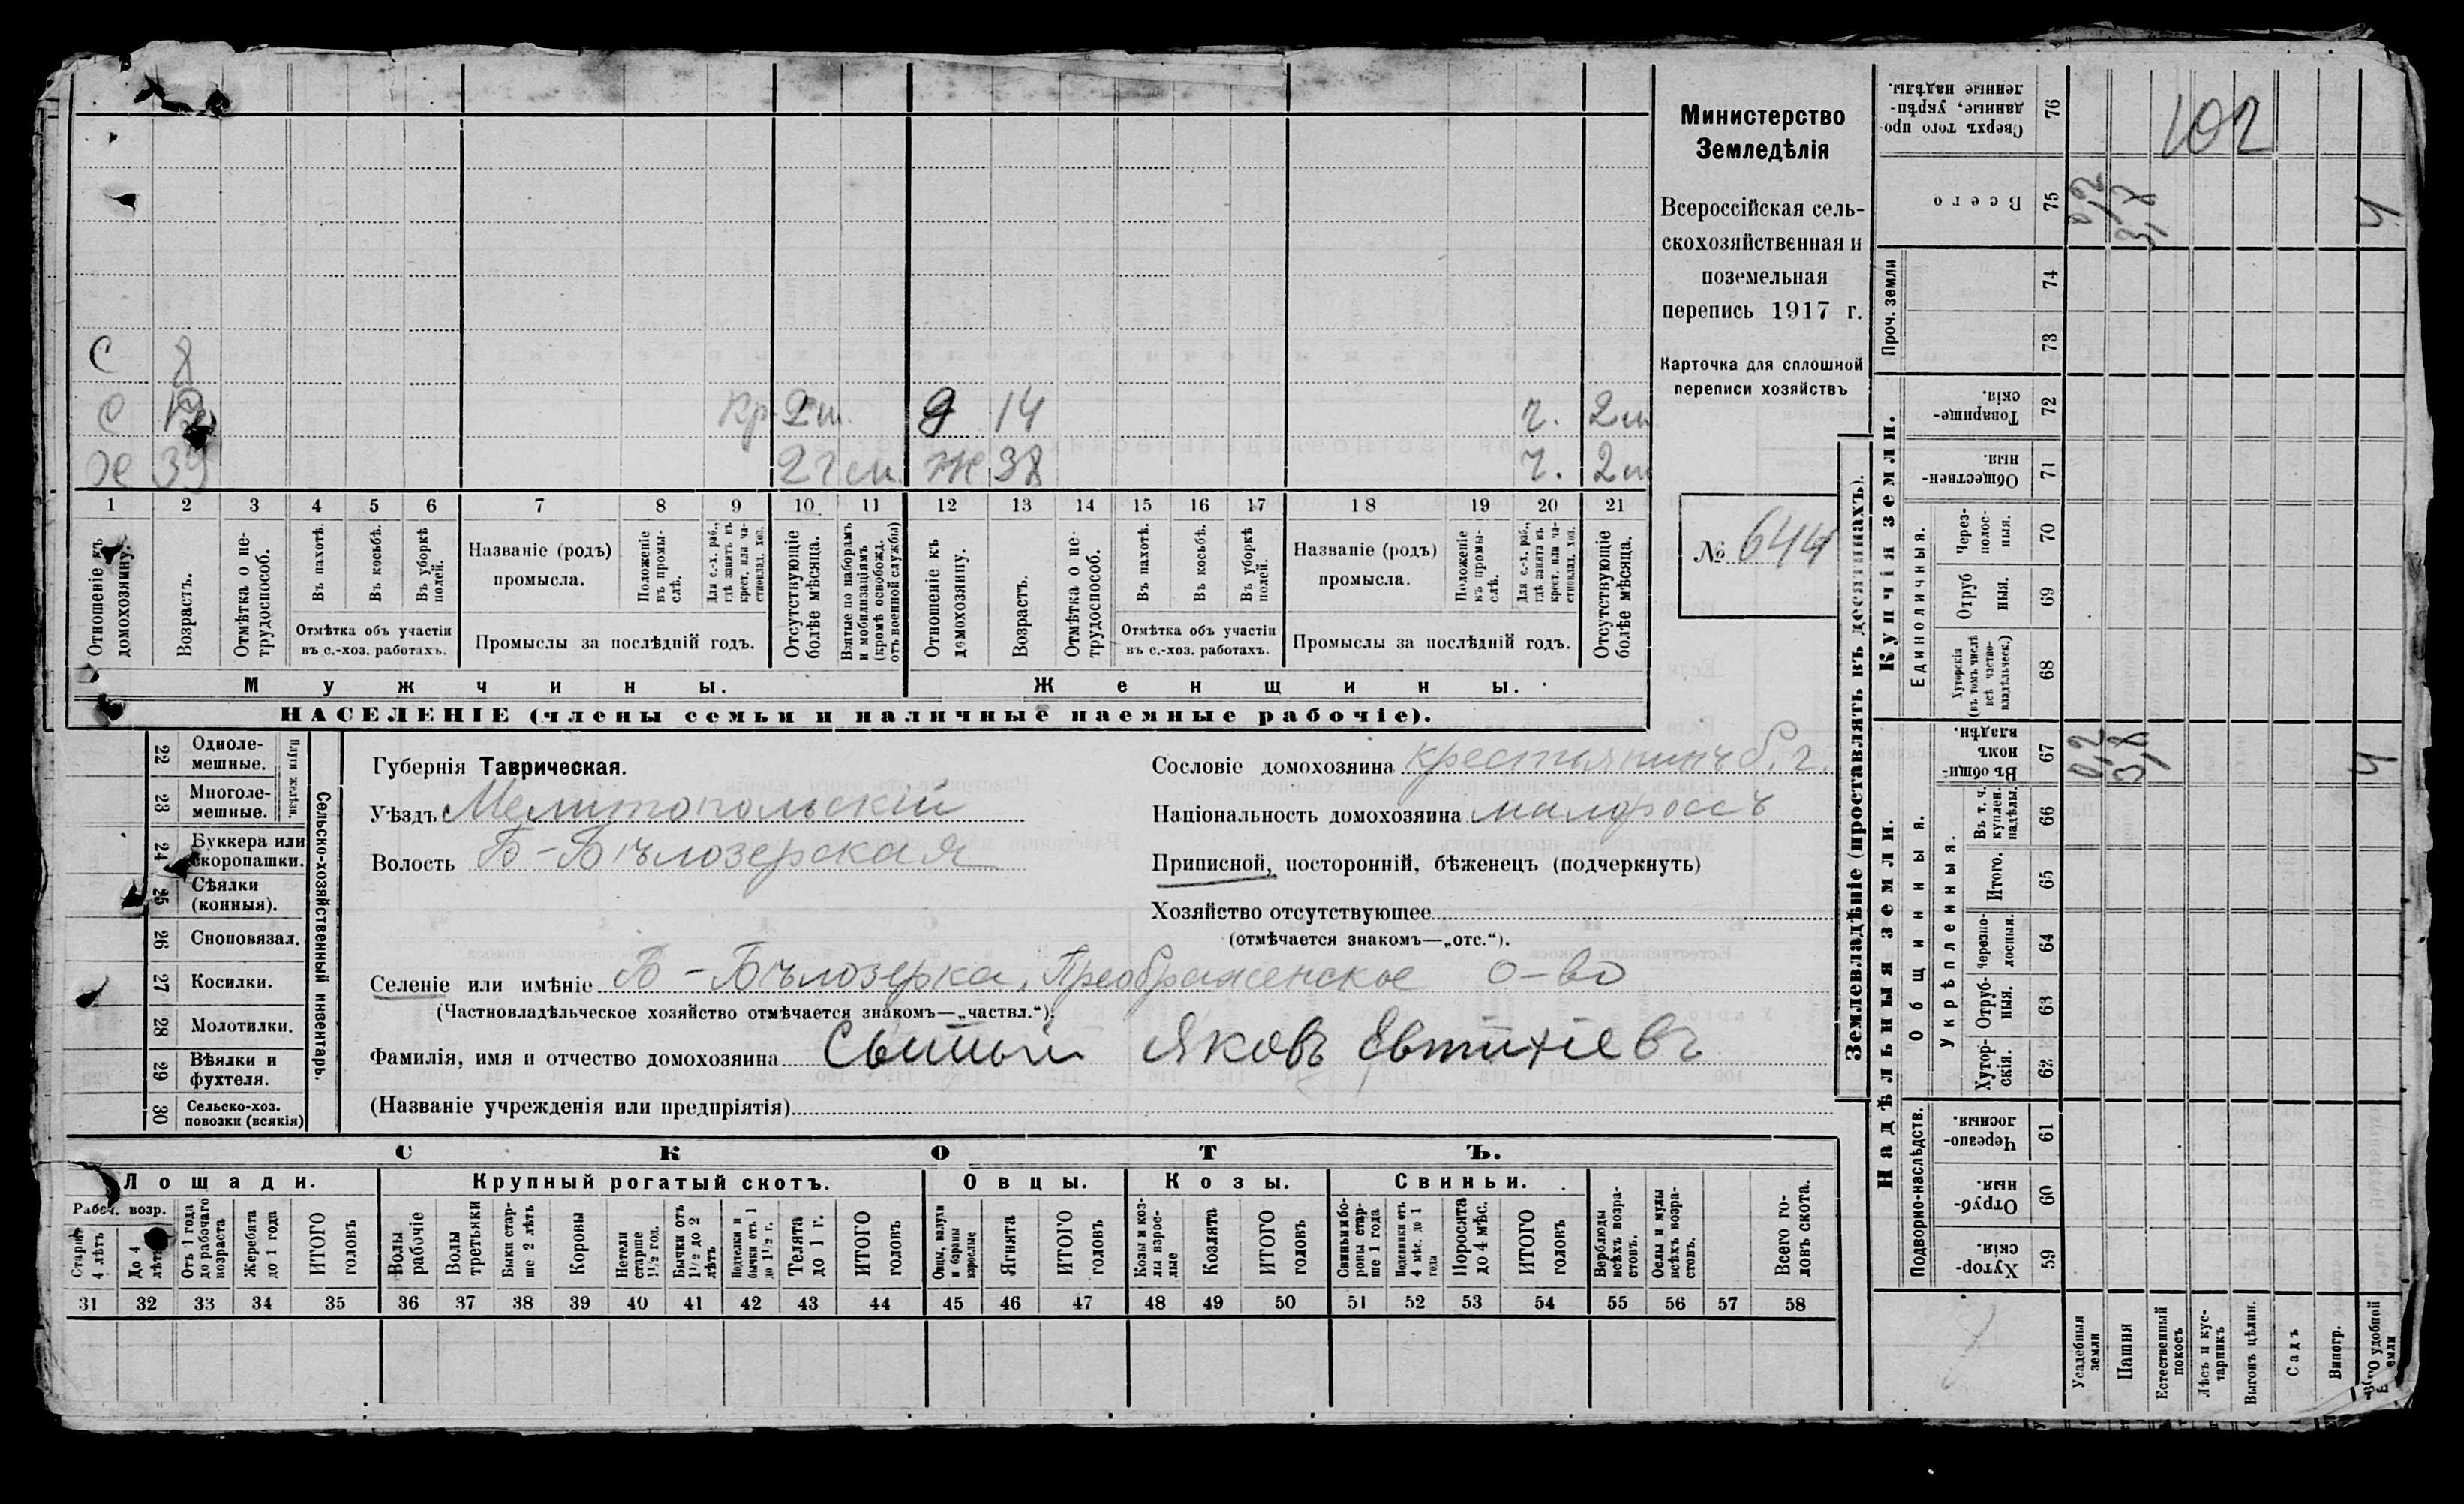 С 8
С 12 Кр. 2 м. 9 14 ч. 2 м
Х 39 2 г см. Ж 38 ч. 2 м
1 2 3 4 5 6 7 8 9 10 11 12 13 14 15 16 17 18 19 20 21
Отношеніе къ домохозяину.
Возрастъ.
Отмѣтка о не-
трудоспособ.
Въ пахотѣ.
Въ косьбѣ.
Въ уборкѣ
полей.
Отмѣтка объ участіи
въ с.-хоз. работахъ.
Названіе (родъ)
промысла.
Положеніе
въ промы-
слѣ.
Для с.-х. раб.,
гдѣ занятъ въ
крест. или ча-
стновлад. хоз.
Промыслы за послѣдній годъ.
Отсутствующіе
болѣе мѣсяца.
Взятые по наборамъ
и мобилизаціямъ
(кромѣ освобожд.
отъ военной службы)
Отношеніе къ
домохозяину.
Возрастъ.
Отмѣтка о не-
трудоспособ.
Въ пахотѣ.
Въ косьбѣ.
Въ уборкѣ
полей.
Отмѣтка объ участіи
въ с.-хоз. работахъ.
Названіе (родъ)
промысла.
Положеніе
въ промы-
слѣ.
Для с.-х. раб.,
гдѣ занята въ
крест. или ча-
стновлад. хоз.
Промыслы за послѣдній годъ.
Отсутствующіе
болѣе мѣсяца.
Мужчины.
Женщины.
НАСЕЛЕНІЕ (члены семьи и наличные наемные рабочіе).
Министерство
Земледѣлія
Всероссійская сель-
скохозяйственная и
поземельная
перепись 1917 г.
Карточка для сплошной
переписи хозяйствъ
№ 644
22 Одноле-
мешные.
23 Многоле-
мешные.
Плуги желѣзн.
24 Буккера или
скоропашки.
25 Сѣялки
(конныя).
26 Сноповязал.
27 Косилки.
28 Молотилки.
29 Вѣялки и
фухтеля.
30 Сельско-хоз.
повозки (всякія)
Сельско-хозяйственный инвентарь.
Губернія Таврическая.
Уѣздъ Мелитопольскій
Волость Б-Бѣлозерская
Сословіе домохозяина крестьянинъ б. г.
Національность домохозяина малороссъ
Приписной, посторонній, бѣженецъ (подчеркнуть)
Хозяйство отсутствующее
(отмѣчается знакомъ—„отс.“).
Селеніе или имѣніе Б-Бѣлозерка, Преображенское о-во
(Частновладѣльческое хозяйство отмѣчается знакомъ—„частвл.“).
Фамилія, имя и отчество домохозяина Сытый Яковъ Евтихіевъ
(Названіе учрежденія или предпріятія)
СКОТЪ.
Лошади. Крупный рогатый скотъ. Овцы. Козы. Свиньи.
Рабоч. возр.
Старше
4 лѣтъ
До 4
лѣтъ
Отъ 1 года
до рабочаго
возраста
Жеребята
до 1 года
ИТОГО
головъ
Волы
рабочіе
Волы
третьяки
Быки стар-
ше 2 лѣтъ
Коровы
Нетели
старше
1½ год.
Бычки отъ
1½ до 2
лѣтъ
Подтелки и
бычки отъ 1
до 1½ г.
Телята
до 1 г.
ИТОГО
головъ
Овцы, валухи
и бораны
взрослые
Ягнята
ИТОГО
головъ
Козы и коз-
лы взрос-
лые
Козлята
ИТОГО
головъ
Свиньи и бо-
ровы стар-
ше 1 года
Подсвинки отъ
4 мѣс. до 1
года
Поросята
до 4 мѣс.
ИТОГО
головъ
Верблюды
всѣхъ возра-
стовъ.
Ослы и мулы
всѣхъ возра-
стовъ.
Всего го-
ловъ скота.
31 32 33 34 35 36 37 38 39 40 41 42 43 44 45 46 47 48 49 50 51 52 53 54 55 56 57 58
Землевладѣніе (проставлять въ десятинахъ).
Надѣльныя земли.
Купчія земли.
Проч. земли
Подворно-наслѣдств.
Общинныя.
Укрѣпленныя.
Единоличныя.
Сверхъ того про-
данные, укрѣп-
ленные надѣлы.
76
102
Всего
75 0,2 3,8 4
74
73
Товарище-
скія.
72
Обществен-
ныя.
71
Через-
полос-
ныя.
70
Отруб
ныя.
69
Хуторскія
(въ томъ числѣ
всѣ частно-
владѣльческ.)
68
Въ общи-
номъ
владѣн.
67 0,2 3,8 4
Въ т. ч.
куплен.
надѣлы.
66
Итого.
65
Черезпо-
лосныя.
64
Отруб-
ныя.
63
Хутор-
скія.
62
Черезпо-
лосныя.
61
Отруб-
ныя.
60
Хутор-
скія.
59
Усадебныя
земли
Пашня
Естественный
покосъ
Лѣсъ и кус-
тарникъ
Выгонъ цѣлин.
Садъ
Виногр.